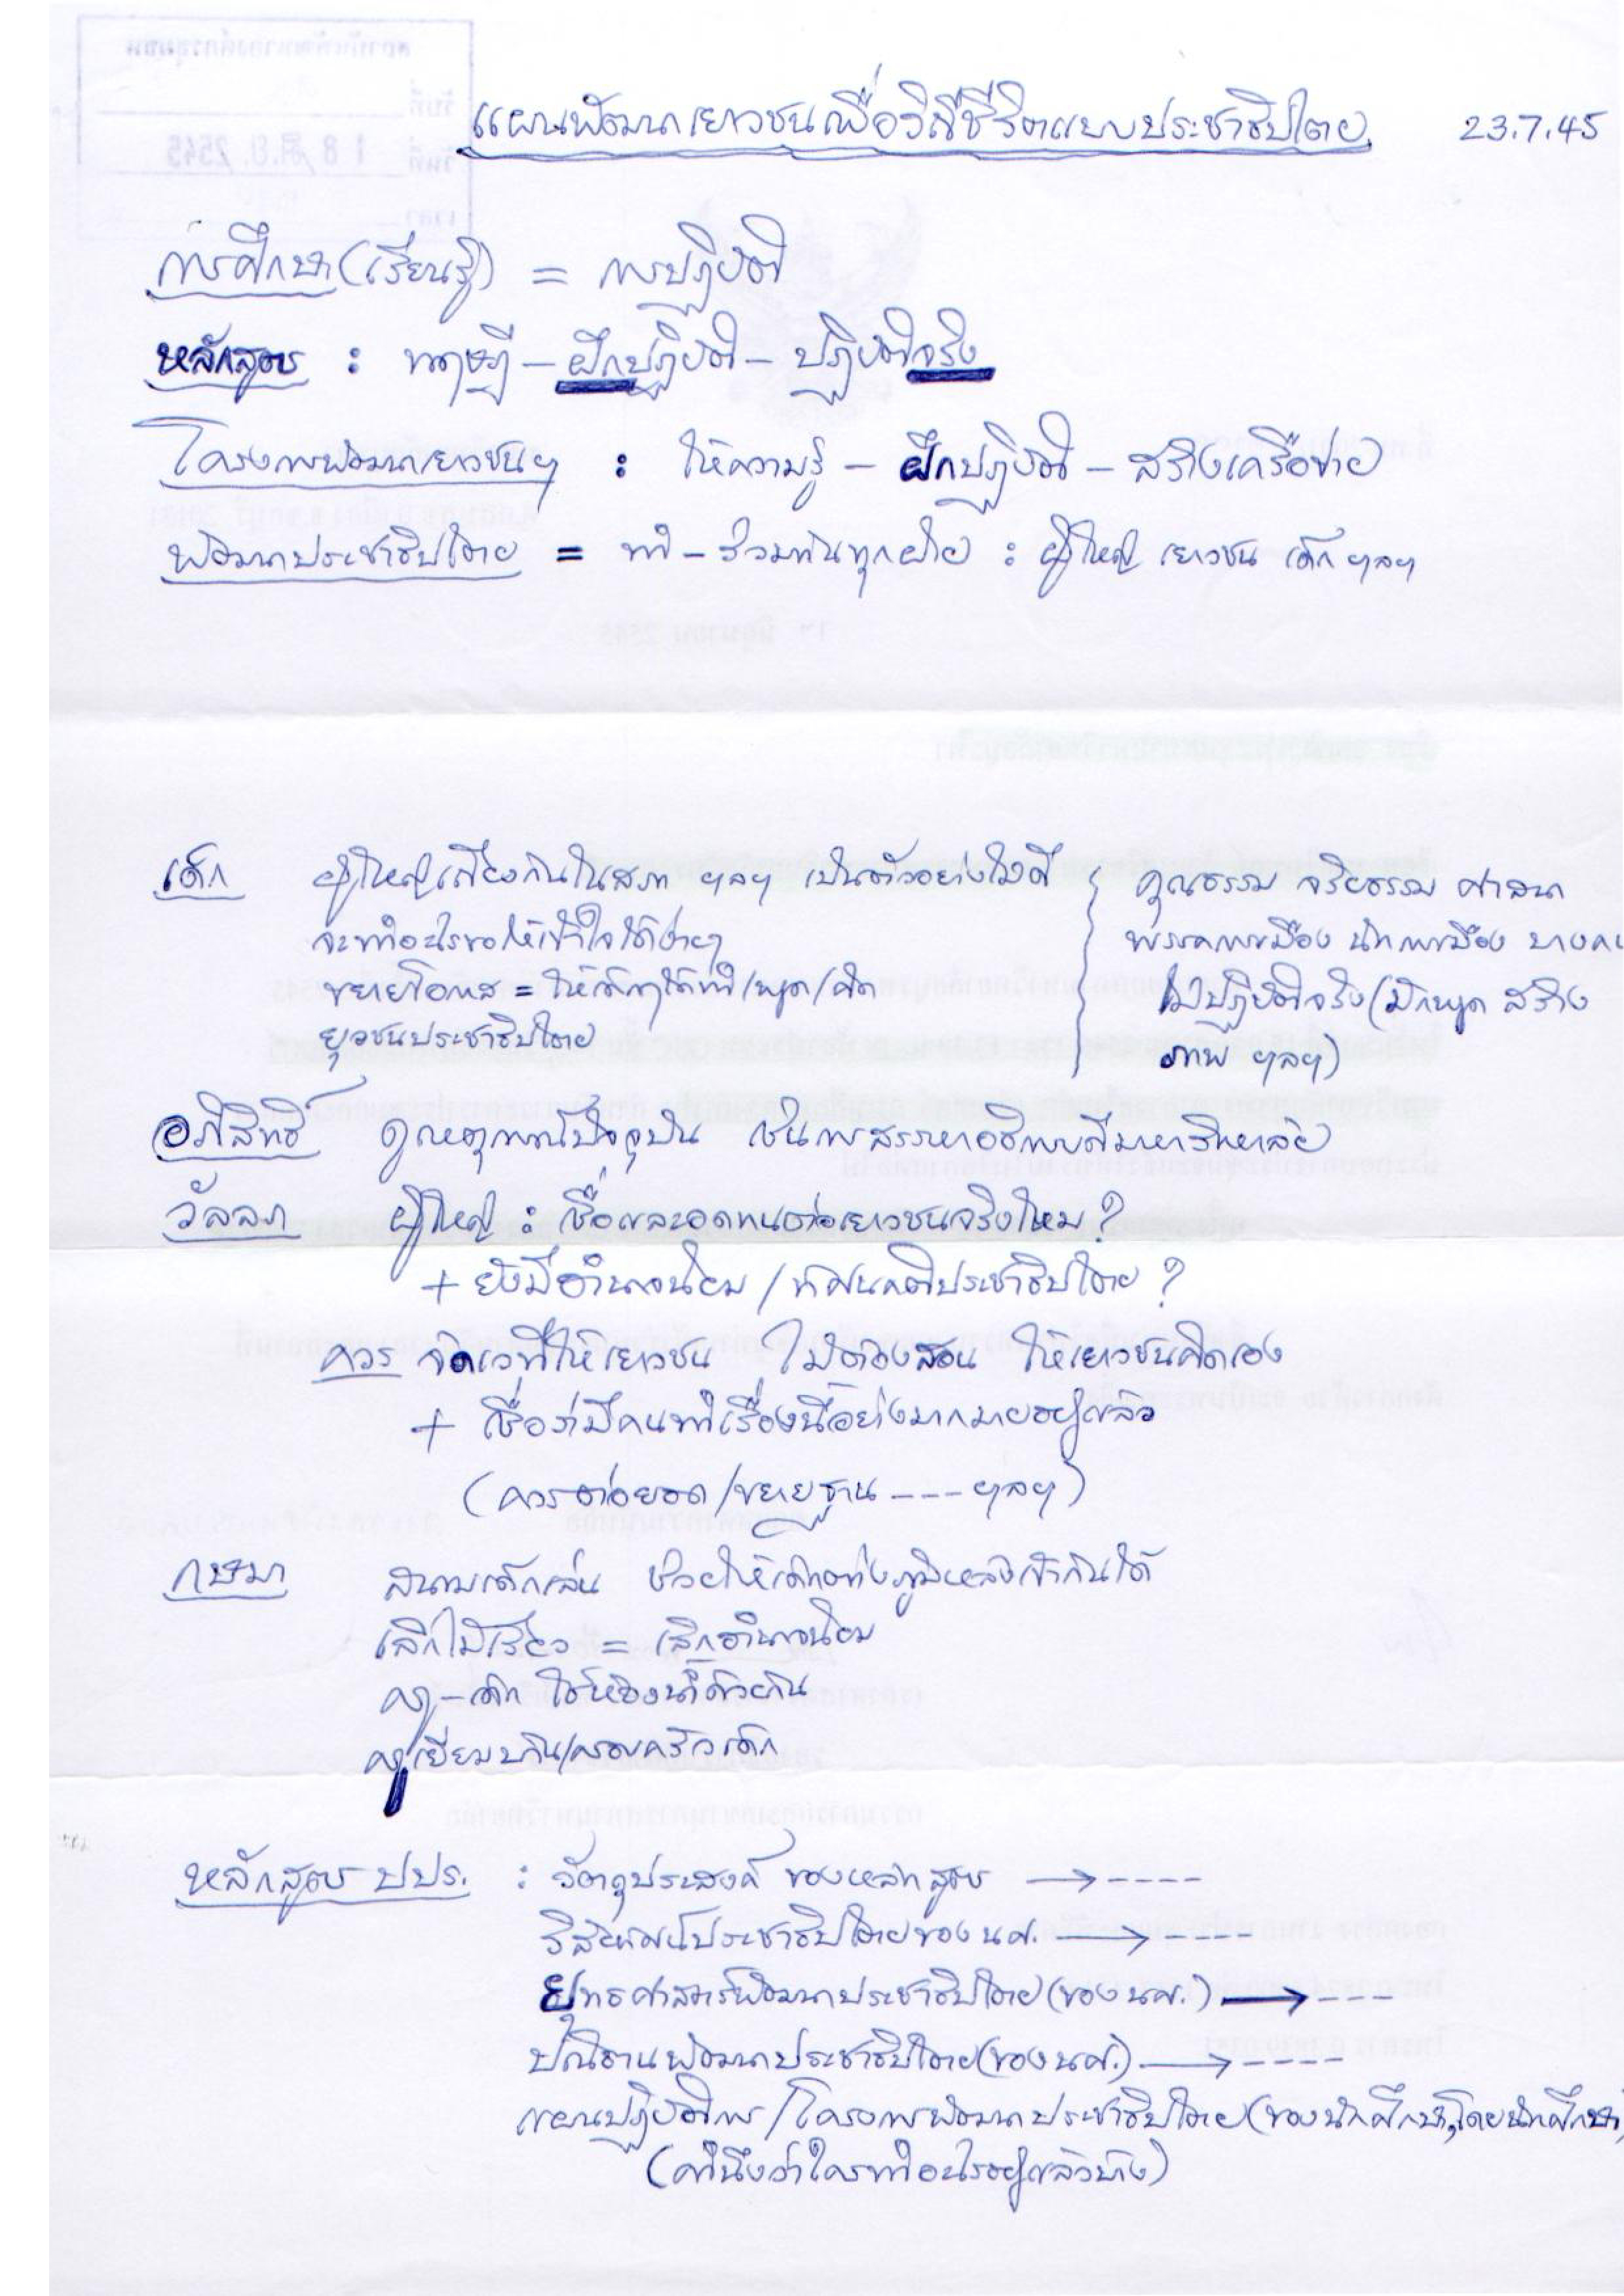 แผนพัฒนาเยาวชนเพื่อวิถีชีวิตแบบประชาธิปไตย 23.7.45
การศึกษา (เรียนรู้) = การปฏิบัติ
หลักสูตร : ทฤษฎี – ฝึกปฏิบัติ – ปฏิบัติจริง
โครงการพัฒนาเยาวชนฯ : ให้ความรู้ – ฝึกปฏิบัติ – สร้างเครือข่าย
พัฒนาประชาธิปไตย = ทำ – ร่วมกันทุกฝ่าย : ผู้ใหญ่ เยาวชน เด็ก ฯลฯ
เด็ก ผู้ใหญ่เถียงกันในสภา ฯลฯ เป็นตัวอย่างไม่ดี
จะทำอะไรขอให้เข้าใจได้ง่ายๆ
ขยายโอกาส = ให้เด็กๆได้ทำ/พูด/คิด
ยุวชนประชาธิปไตย
คุณธรรม จริยธรรม ศาสนา
พรรคการเมือง นักการเมือง บางคน
ไม่ปฏิบัติจริง (มักพูด สร้าง
ภาพ ฯลฯ)
อภิสิทธิ์ ดูเหตุการณ์ปัจจุบัน เช่นการสรรหาอธิการบดีมหาวิทยาลัย
วัลลภ ผู้ใหญ่ : เชื่อและอดทนต่อเยาวชนจริงไหม ?
+ ยังมีอำนาจนิยม / ทัศนคติประชาธิปไตย ?
ควร จัดเวทีให้เยาวชน ไม่ต้องสอน ให้เยาวชนคิดเอง
+ เชื่อว่ามีคนทำเรื่องนี้อย่างมากมายอยู่แล้ว
(ควรต่อยอด/ขยายฐาน ---- ฯลฯ)
กษมา สนามเด็กเล่น ช่วยให้เด็กต่างภูมิหลังเข้ากันได้
เลิกไม้เรียว = เลิกอำนาจนิยม
ครู – เด็ก ใช้ห้องน้ำด้วยกัน
ครูเยี่ยมบ้าน/ครอบครัวเด็ก
หลักสูตร ปปร. : วัตถุประสงค์ ของหลักสูตร → ----
วิสัยทัศน์ประชาธิปไตยของ นศ. → ----
ยุทธศาสตร์พัฒนาประชาธิปไตย (ของ นศ.) → ---
ปณิธานพัฒนาประชาธิปไตย (ของ นศ.) → ----
แผนปฏิบัติการ / โครงการพัฒนาประชาธิปไตย (ของนักศึกษา, โดยนักศึกษา)
(คำนึงว่าใครทำอะไรอยู่แล้วบ้าง)